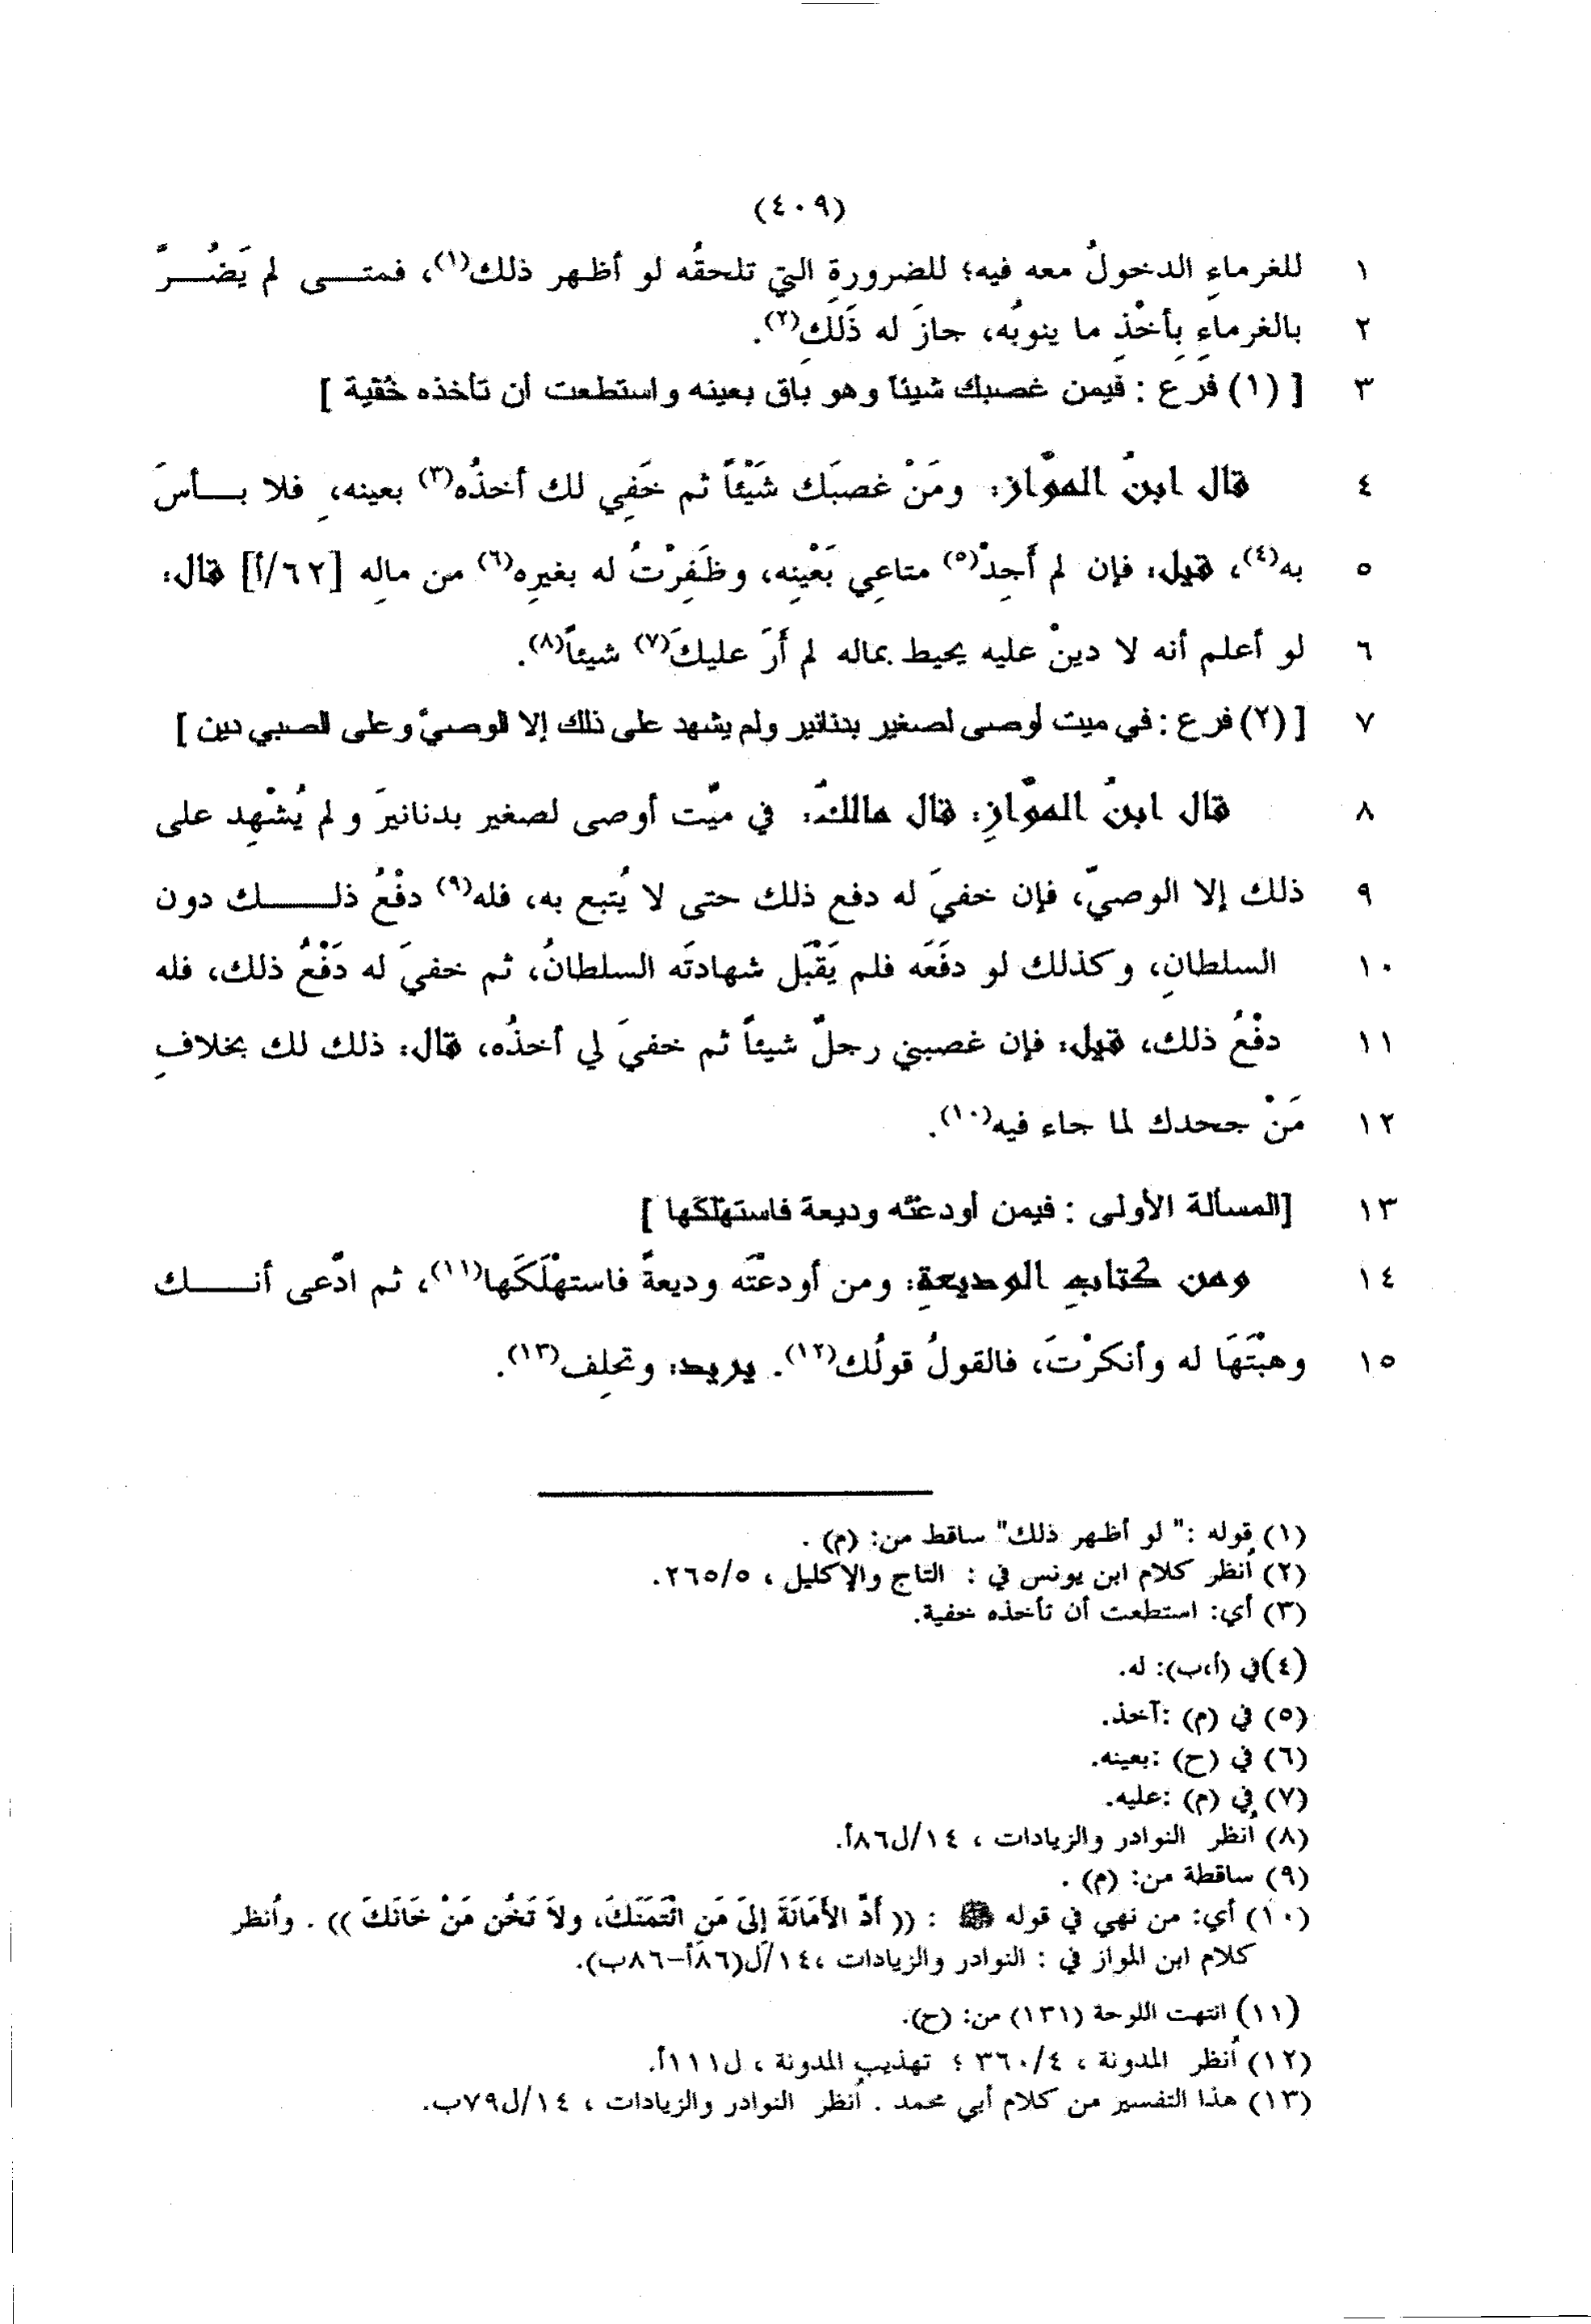 (٤٠٩)
١ للغرماءِ الدخولُ معه فيه؛ للضرورةِ التي تلحقُه لو أظهر ذلك(١)، فمتـــى لم يَضُـــرَّ
٢ بالغرماءِ بِأخْذِ ما ينوبُه، جازَ له ذَلِك(٢).
٣ [ (١) فرع : فيمن غصبك شيئاً وهو باق بعينه واستطعت أن تأخذه خُفية ]
٤ قال ابنُ الموَّاز: ومَنْ غصبَك شَيْئاً ثم خَفِي لك أخذُه(٣) بعينهِ، فلا بـــأسَ
٥ به(٤)، قيل: فإن لم أَجِدْ(٥) متاعِي بَعْينِه، وظَفِرْتُ له بغيرِه(٦) من مالِه [٦٢/أ] قال:
٦ لو أعلم أنه لا دينْ عليه يحيط بماله لم أَرَ عليكَ(٧) شيئاً(٨).
٧ [ (٢) فرع : في ميت أوصى لصغير بدنانير ولم يشهد على ذلك إلا الوصيّ وعلى الصبي دين ]
٨ قال ابنُ الموَّازِ: قال مالكٌ: في ميِّت أوصى لصغير بدنانيرَ و لم يُشْهِد على
٩ ذلك إلا الوصيّ، فإن خفيَ له دفع ذلك حتى لا يُتبع به، فله(٩) دفْعُ ذلـــــك دون
١٠ السلطانِ، وكذلك لو دفَعَه فلم يَقْبَل شهادتَه السلطانُ، ثم خفيَ له دَفْعُ ذلك، فله
١١ دفْعُ ذلك، قيل: فإن غصبني رجلٌ شيئاً ثم خفيَ لي أخذُه، قال: ذلك لك بخلافِ
١٢ مَنْ جحدك لما جاء فيه(١٠).
١٣ [المسألة الأولى : فيمن أودعْتَه وديعة فاستهْلكها ]
١٤ ومن كتابِ الوديعةِ: ومن أودعْتَه وديعةً فاستهْلَكَها(١١)، ثم ادَّعى أنـــــك
١٥ وهبْتَهَا له وأنكرْتَ، فالقولُ قولُك(١٢). يريد: وتحلِف(١٣).
(١) قوله :" لو أظهر ذلك" ساقط من: (م) .
(٢) أنظر كلام ابن يونس في : التاج والإكليل ، ٢٦٥/٥.
(٣) أي: استطعت أن تأخذه خفية.
(٤)في (أ،ب): له.
(٥) في (م) :آخذ.
(٦) في (ح) :بعينه.
(٧) في (م) :عليه.
(٨) أنظر النوادر والزيادات ، ١٤/ل٨٦أ.
(٩) ساقطة من: (م) .
(١٠) أي: من نهي في قوله ﷺ : (( أَدِّ الأَمَانَةَ إِلَىَ مَنِ ائْتَمَنَكَ، ولاَ تَخُن مَنْ خَانَكَ )) . وأنظر
كلام ابن المواز في : النوادر والزيادات ،١٤/ل(٨٦أ-٨٦ب).
(١١) انتهت اللوحة (١٣١) من: (ح).
(١٢) أنظر المدونة ، ٣٦٠/٤ ؛ تهذيب المدونة ، ل١١١أ.
(١٣) هذا التفسير من كلام أبي محمد . أنظر النوادر والزيادات ، ١٤/ل٧٩ب.